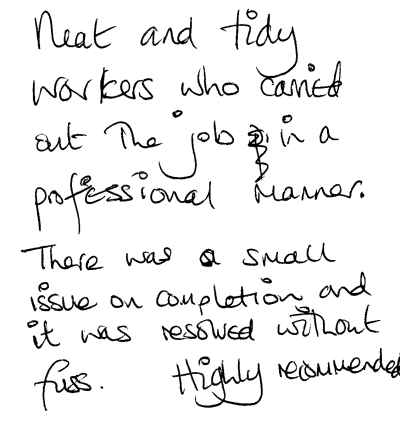 Neat and tidy
workers who carried
out The job in a
professional manner.
There was a small
issue on completion and
it was resolved without
fuss. Highly recommended